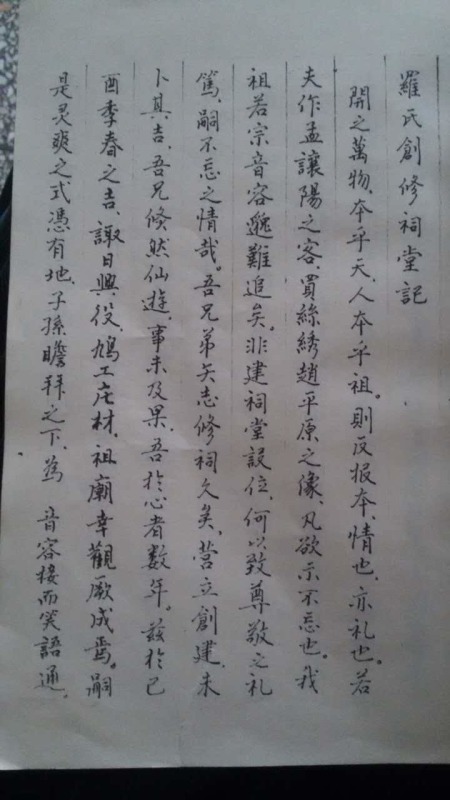 羅氏創修祠堂記
開之萬物、本乎天、人本乎祖。則反报本、情也、亦礼也。若
夫作孟讓陽之客、買絲綉趙平原之像、凡欲示不忘也。我
祖若宗音容邈難追矣。非建祠堂設位、何以致尊敬之礼
篤、嗣不忘之情哉。吾兄弟矢志修祠久矣。营立創建、未
卜其吉、吾兄倏然仙遊、事未及果、吾於心者数年。兹於己
酉季春之吉、諏日興役、鳩工庀材、祖廟幸觀厥成焉。嗣
是灵爽之式憑有地、子孫瞻拜之下、為 音容接而笑語通。